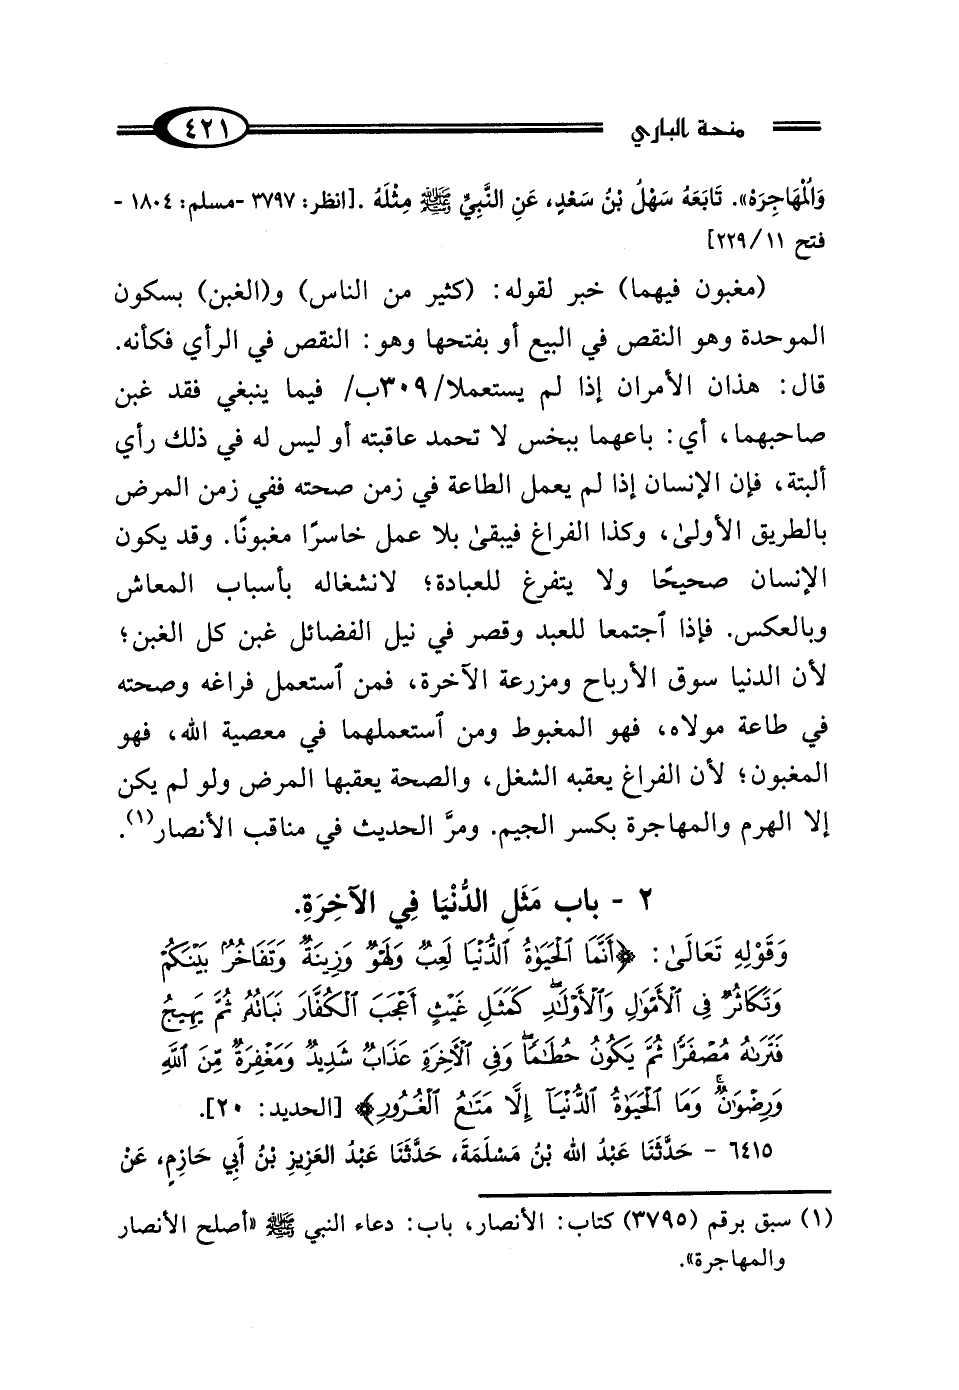 منحة الباري ٤٢١
وَالْمُهَاجِرَهْ». تَابَعَهُ سَهْلُ بْنُ سَعْدٍ، عَنِ النَّبِيِّ ﷺ مِثْلَهُ .[انظر: ٣٧٩٧ -مسلم: ١٨٠٤ -
فتح ١١/ ٢٢٩]
(مغبون فيهما) خبر لقوله: (كثير من الناس) و(الغبن) بسكون
الموحدة وهو النقص في البيع أو بفتحها وهو: النقص في الرأي فكأنه.
قال: هذان الأمران إذا لم يستعملا/ ٣٠٩ب/ فيما ينبغي فقد غبن
صاحبهما، أي: باعهما ببخس لا تحمد عاقبته أو ليس له في ذلك رأي
ألبتة، فإن الإنسان إذا لم يعمل الطاعة في زمن صحته ففي زمن المرض
بالطريق الأولىٰ، وكذا الفراغ فيبقىٰ بلا عمل خاسرًا مغبونًا. وقد يكون
الإنسان صحيحًا ولا يتفرغ للعبادة؛ لانشغاله بأسباب المعاش
وبالعكس. فإذا ٱجتمعا للعبد وقصر في نيل الفضائل غبن كل الغبن؛
لأن الدنيا سوق الأرباح ومزرعة الآخرة، فمن ٱستعمل فراغه وصحته
في طاعة مولاه، فهو المغبوط ومن ٱستعملهما في معصية الله، فهو
المغبون؛ لأن الفراغ يعقبه الشغل، والصحة يعقبها المرض ولو لم يكن
إلا الهرم والمهاجرة بكسر الجيم. ومرَّ الحديث في مناقب الأنصار(١).
٢ - باب مَثَلِ الدُّنْيَا فِي الآخِرَةِ.
وَقَوْلِهِ تَعَالَىٰ: ﴿أَنَّمَا ٱلْحَيَوٰةُ ٱلدُّنْيَا لَعِبٌ وَلَهْوٌ وَزِينَةٌ وَتَفَاخُرٌۢ بَيْنَكُمْ
وَتَكَاثُرٌ فِي ٱلْأَمْوَٰلِ وَٱلْأَوْلَٰدِۖ كَمَثَلِ غَيْثٍ أَعْجَبَ ٱلْكُفَّارَ نَبَاتُهُۥ ثُمَّ يَهِيجُ
فَتَرَىٰهُ مُصْفَرًّا ثُمَّ يَكُونُ حُطَٰمًاۖ وَفِي ٱلْآخِرَةِ عَذَابٌ شَدِيدٌ وَمَغْفِرَةٌ مِّنَ ٱللَّهِ
وَرِضْوَٰنٌۚ وَمَا ٱلْحَيَوٰةُ ٱلدُّنْيَآ إِلَّا مَتَٰعُ ٱلْغُرُورِ﴾ [الحديد: ٢٠].
٦٤١٥ - حَدَّثَنَا عَبْدُ الله بْنُ مَسْلَمَةَ، حَدَّثَنَا عَبْدُ العَزِيزِ بْنُ أَبِي حَازِمٍ، عَنْ
(١) سبق برقم (٣٧٩٥) كتاب: الأنصار، باب: دعاء النبي ﷺ «أصلح الأنصار
والمهاجرة».